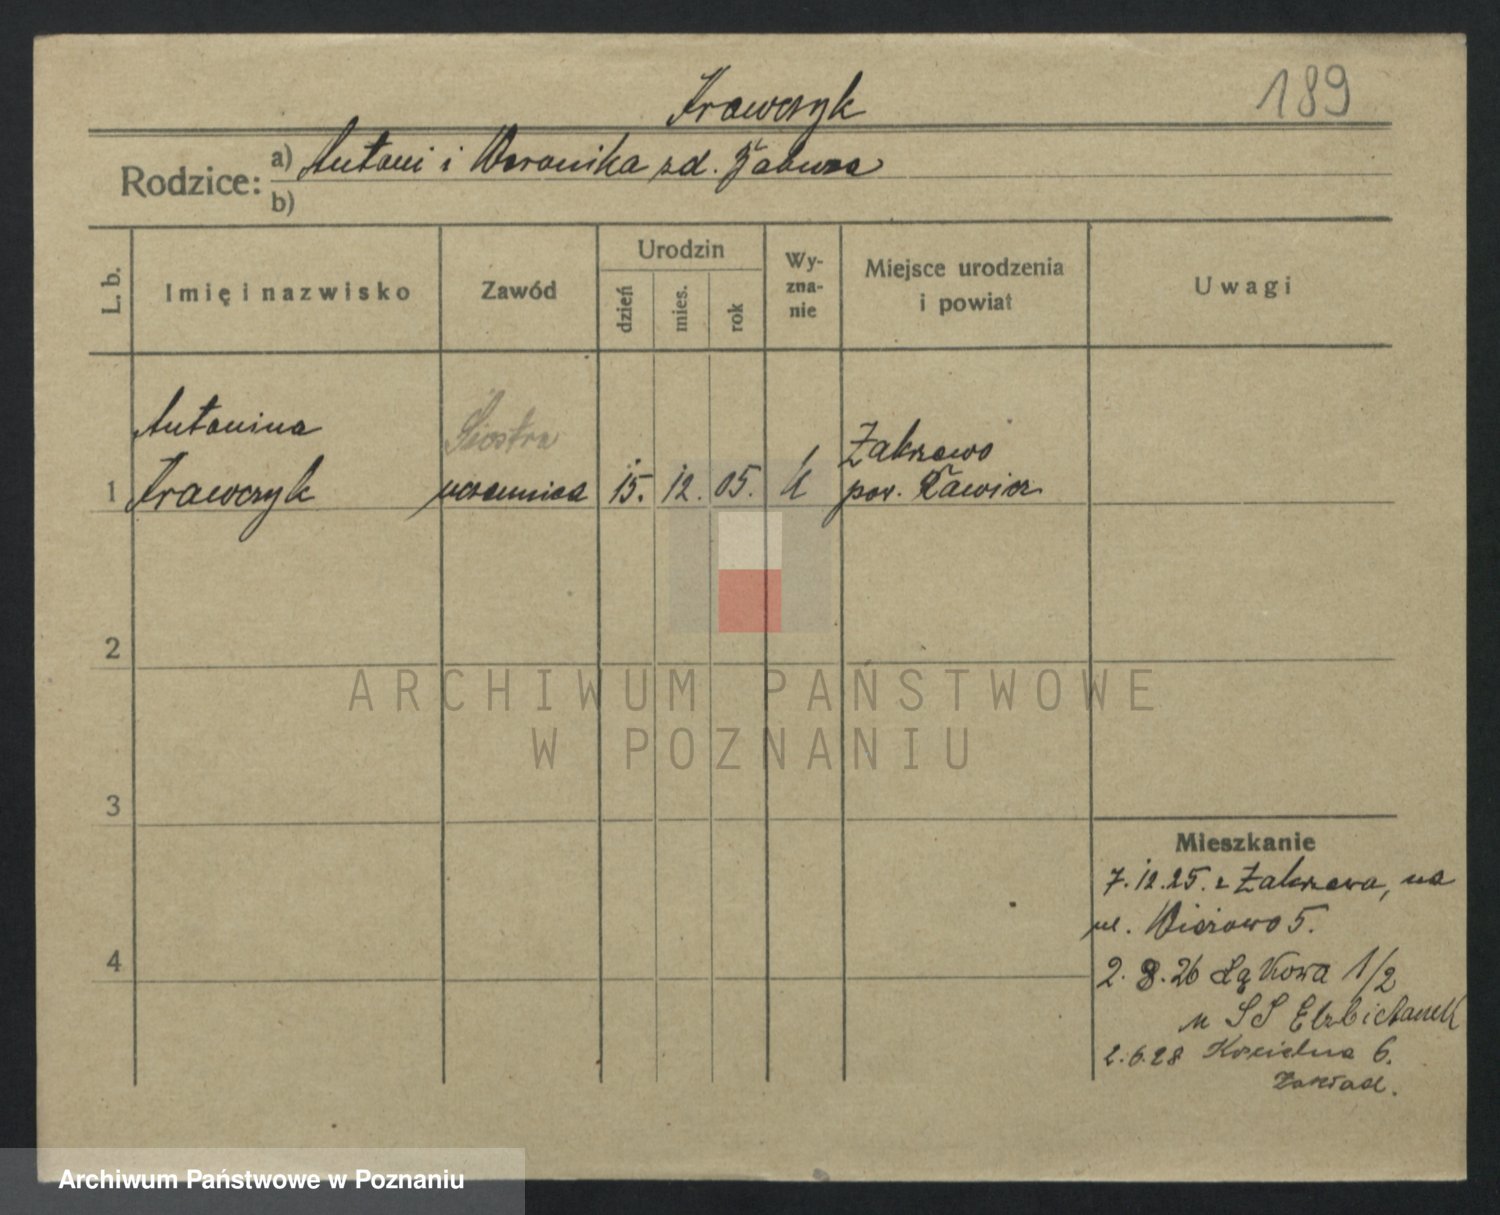 189
Krawczyk
Rodzice: a) Antoni i Weronika zd.
b)
L. b.
Imię i nazwisko
Zawód
Urodzin
dzień
mies.
rok
Wy-
zna-
nie
Miejsce urodzenia
i powiat
Uwagi
Antonina
Siostra
Zakrzewo
1 Krawczyk uczennica 15. 12. 05. k pow. Rawicz
2
3
4
ARCHIWUM PAŃSTWOWE
W POZNANIU
Mieszkanie
7.12.25. z Zakrzewa, na
ul. 5.
2. 8. 26 Łąkowa 1/2
u SS Elżbietanek
2.6.28 Kościelna 6.
Zakład.
Archiwum Państwowe w Poznaniu